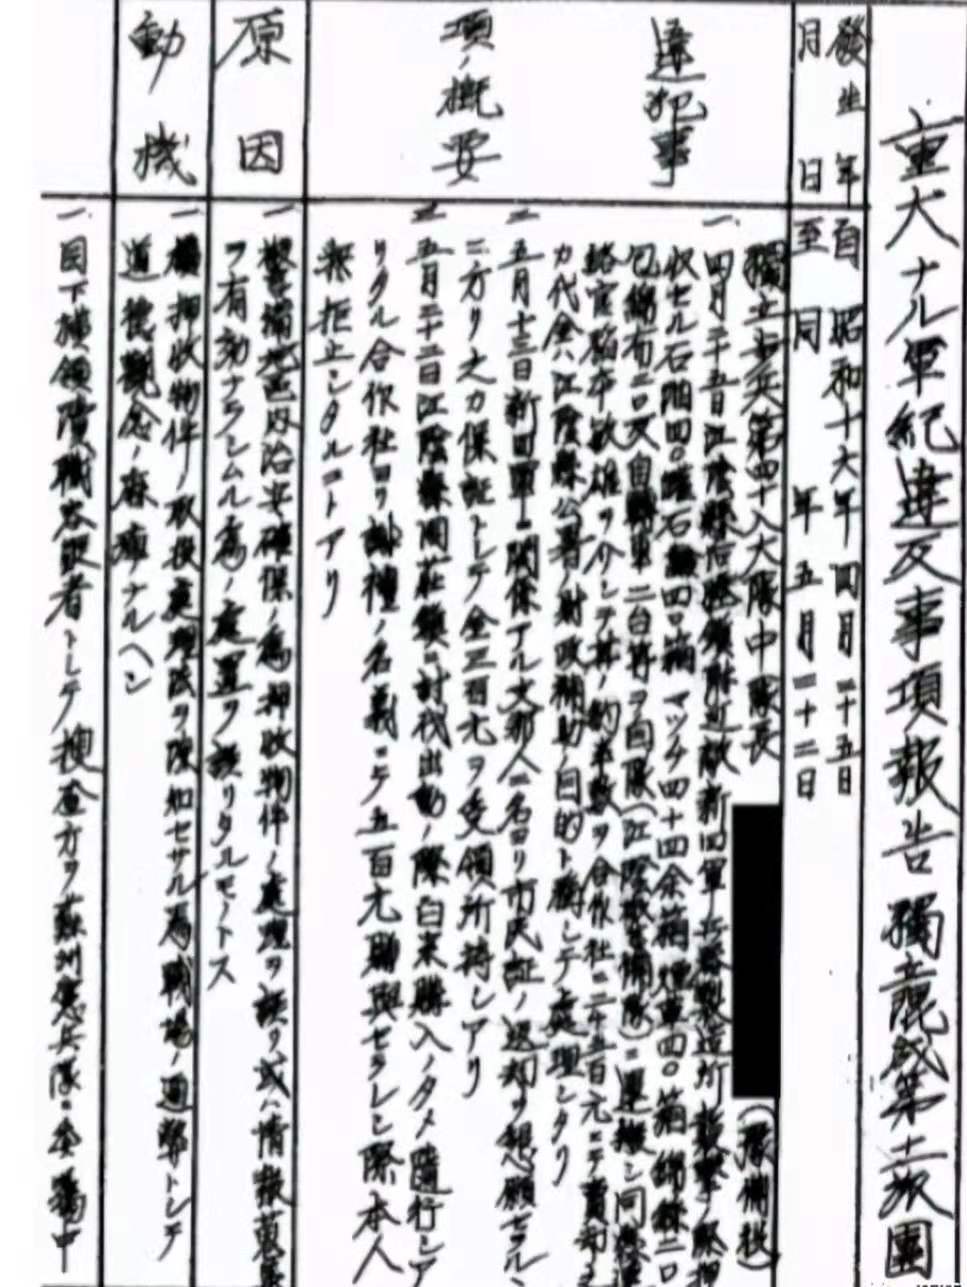 重大ナル軍紀違反事項報告 獨立混成第十一旅團
發生年月日
自 昭和十六年四月二十五日
至 同 年五月二十二日
違犯事項ノ概要
獨立歩兵第四十八大隊中隊長 (豫備役)
一、四月二十五日江陰縣 鎮附近敵新四軍兵器製造所襲撃ノ際押
收セル石油四〇罐石鹸四〇箱マッチ四十四余箱煙草四〇箱綿絲二〇
包綿布二〇反自轉車二台等ヲ自隊(江陰警備隊)ニ運搬シ同縣連
絡官 ヲ介シテ其ノ約半数ヲ合作社ニ二千五百元ニテ賣却シ
カ代金ハ江陰縣公署ノ財政補助ノ目的ト稱シテ處理シタリ
二、五月十三日新四軍ニ関係アル支那人二名ヨリ市民証ノ返却ヲ懇願セル
ニ方リ之カ保証トシテ金三百元ヲ受領所持シアリ
三、五月二十二日江陰縣周莊鎮ニ討伐出動ノ際白米購入ノタメ隨行シア
リタル合作社ヨリ謝禮ノ名義ニテ五百元贈與セラレシ際本人
拒止シタルコトアリ
原因
一、警備地區内治安確保ノ為押收物件ノ處理ヲ誤リ或ハ情報蒐集
ヲ有効ナラシムル為ノ處置ヲ誤リタルモノトス
動機
一、押收物件ノ取扱處理法ヲ 知セサル為戰場ノ通弊トシテ
道德觀念ノ麻痺ナルヘシ
一、目下横領瀆職容疑者トシテ搜査方ヲ蘇州憲兵隊ニ 中